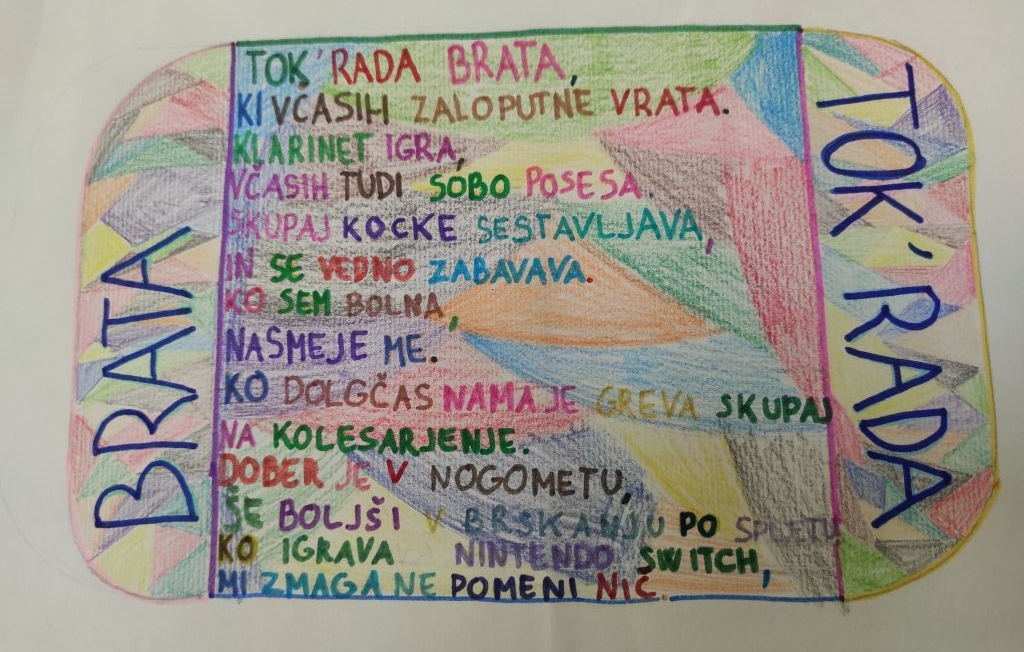 BRATA
TOK'RADA BRATA,
KI VČASIH ZALOPUTNE VRATA.
KLARINET IGRA,
VČASIH TUDI SOBO POSESA.
SKUPAJ KOCKE SESTAVLJAVA,
IN SE VEDNO ZABAVAVA.
KO SEM BOLNA,
NASMEJE ME.
KO DOLGČAS NAMA JE GREVA SKUPAJ
NA KOLESARJENJE.
DOBER JE V NOGOMETU,
ŠE BOLJŠI V BRSKANJU PO SPLETU
KO IGRAVA NINTENDO SWITCH,
MI ZMAGA NE POMENI NIČ.
TOK'RADA